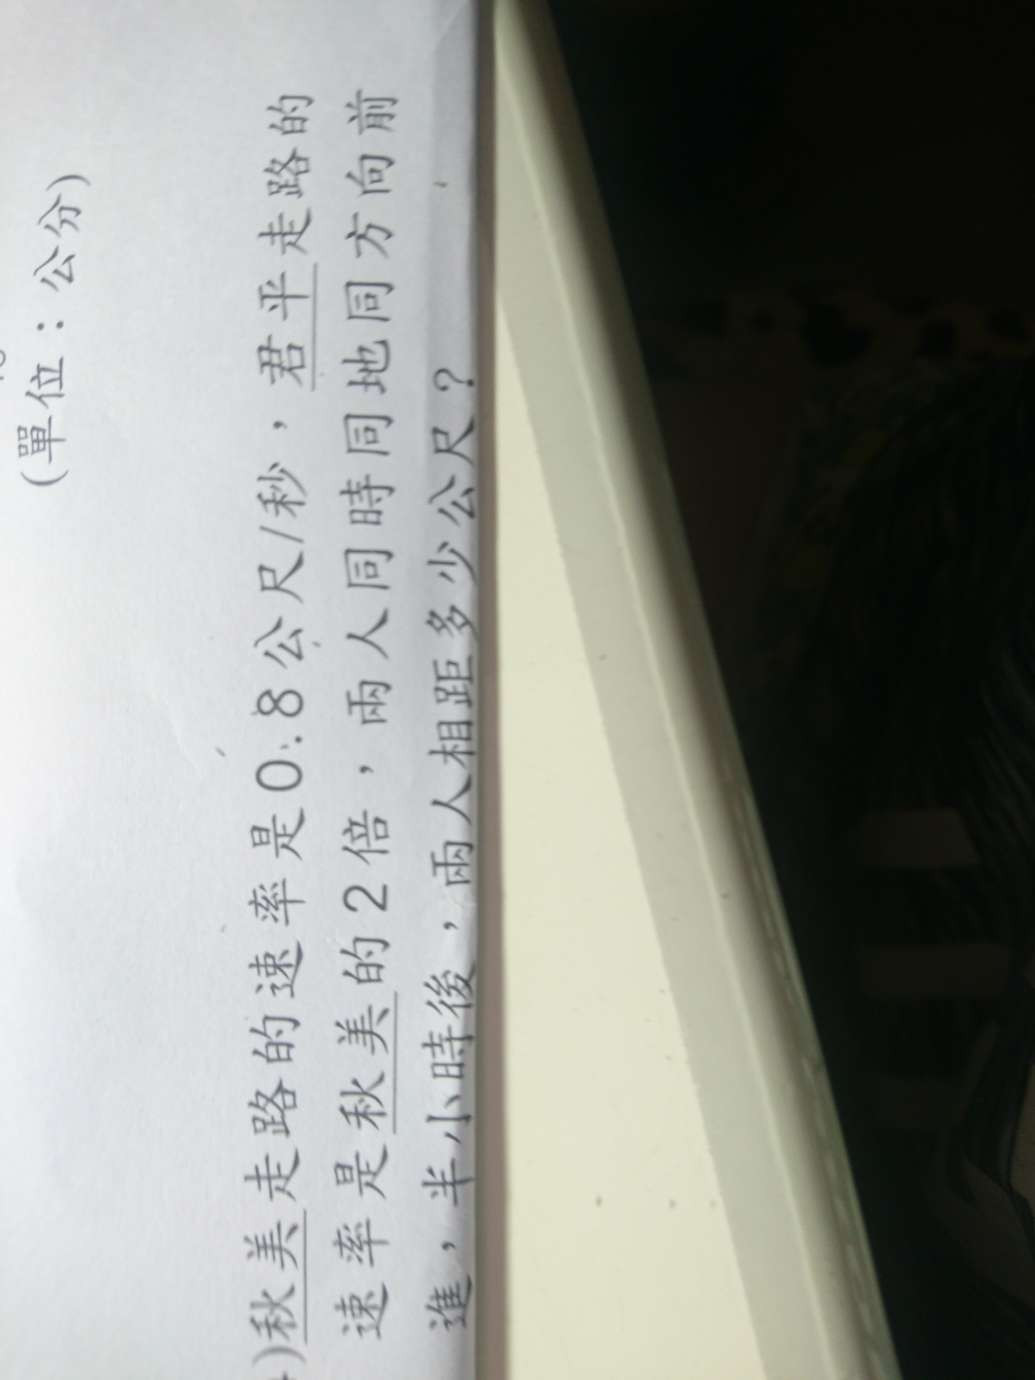 (單位：公分)
)秋美走路的速率是0.8公尺/秒，君平走路的
速率是秋美的2倍，兩人同時同地同方向前
進，半小時後，兩人相距多少公尺？